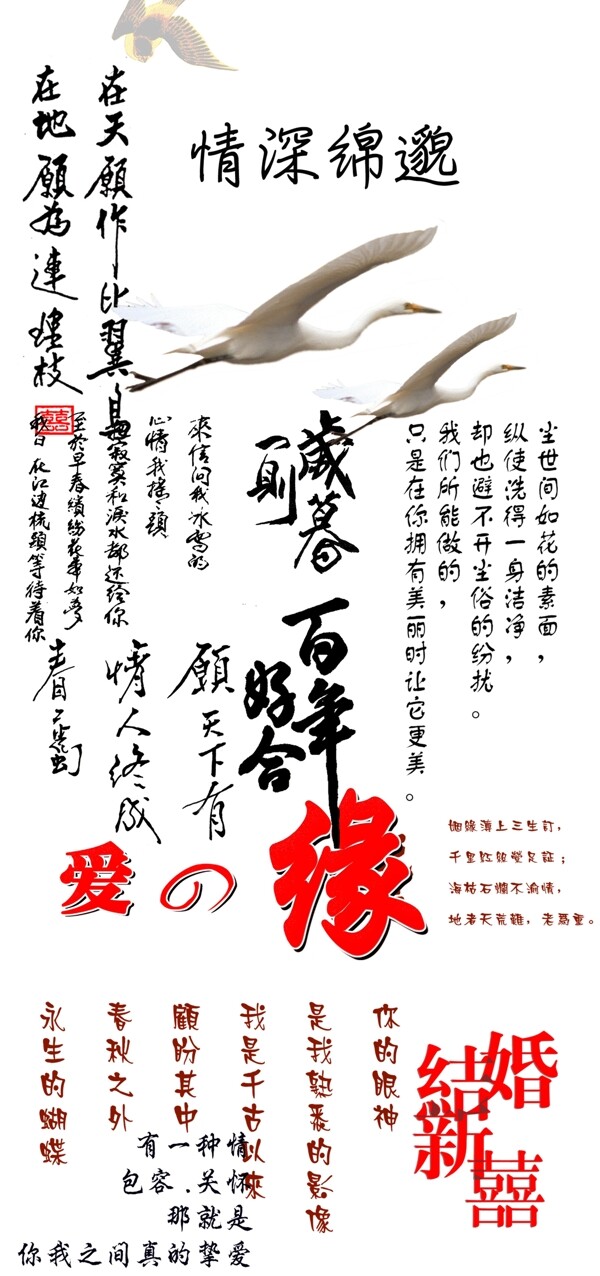 情深綿邈
在天願作比翼鳥
在地願為連理枝
囍
來信问我冰雪的
心情我搖頭
把寂寞和淚水都还给你
至於早春繽紛花事如夢
我日在江边梳頭等待着你
歲暮
一則
百年
好合
尘世间如花的素面，
纵使洗得一身洁净，
却也避不开尘俗的纷扰。
我们所能做的，
只是在你拥有美丽时让它更美。
願天下有
情人终成
爱の缘
姻緣簿上三生訂，
千里红線瑩足証；
海枯石爛不渝情，
地老天荒難，老萬重。
你的眼神
是我熟悉的影像
我是千古以來
顧盼其中
春秋之外
永生的蝴蝶
有一种情
包容．关怀
那就是
你我之间真的挚爱
婚
結
新
囍